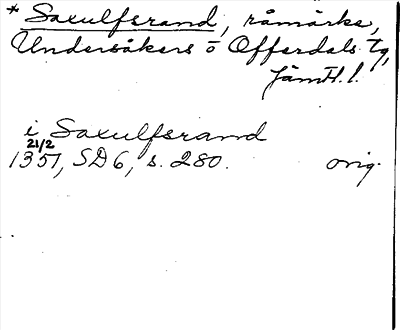 * Saxulfsrand, råmärke,
Undersåkers o Offerdals tg,
Jämtl. l.
i Saxulfsrand
21/2
1351, SD 6, s. 280. orig.